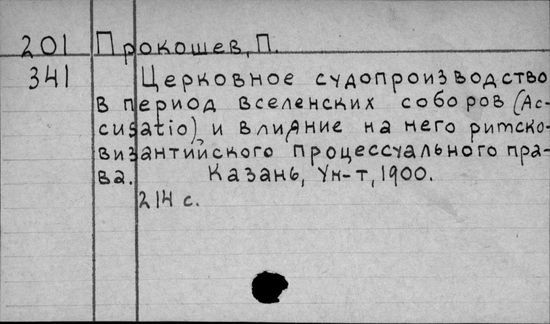 201 Прокошев, П.
341 Церковное судопроизводство
в период вселенских соборов (Ac-
cusatio) и влияние на него ритско-
византийского процессуального пра-
ва. Казань, Ун-т, 1900.
214 с.